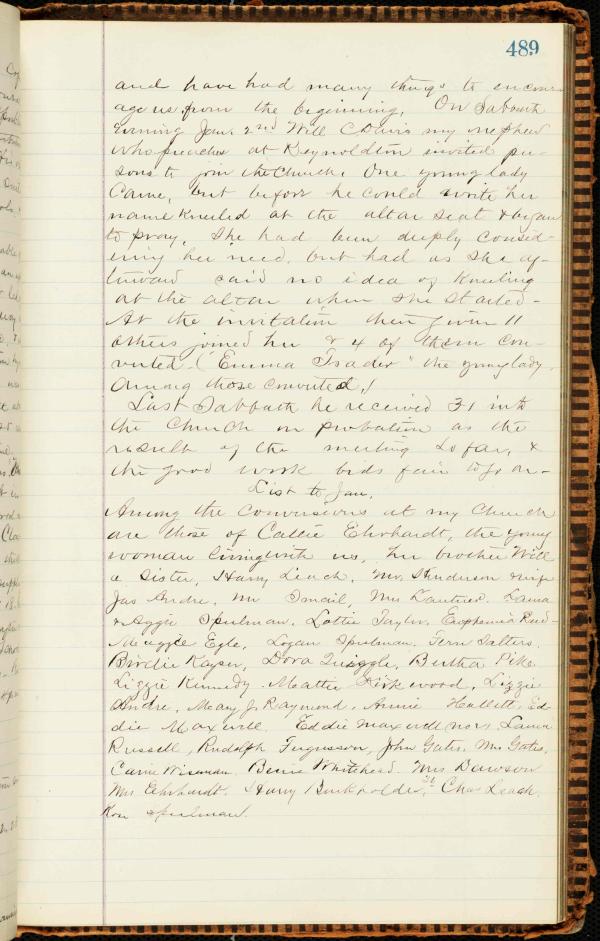 489
and have had many things to encour
age us from the beginning. On Sabbath
evening Jan. 2nd Will C Davis my nephew
who preaches at Reynoldton invited per-
sons to join the Church. One young lady
Came, but before he could write her
name kneeled at the altar seat & began
to pray. She had been deeply consid-
ering her need, but had as she af-
terward said no idea of kneeling
at the altar when she started-
At the invitation then given 11
others joined her & 4 of them con-
verted. ("Emma Trader" the young lady
among those converted.)
Last Sabbath he received 31 into
the Church on probation as the
result of the meeting so far, &
the good work bids fair to go on-
List to Jan.
Among the Conversions at my Church
are those of Callie Ehrhardt, the young
woman living with us, her brother Will
a Sister, Harry Leach, Mr. Henderson & wife
Jas Andre, Mr Ismail, Mrs Lama
& Aggie Spulman. Lottie Taylor. Euphemia Reid-
Meuggie Egle, Logan Spulman. Fern Salters.
Birdie Kayser, Dora Quiggle, Bertha Pike
Lizzie Kennedy. Mattie Kirkwood, Lizzie
Andre, Mary J Raymond, Annie Hallett, Ed-
die Maxwell. Eddie Maxwell Laura
Russell, Rudolph Fergusson, John Gates. Mrs Gates,
Carrie Wiseman. Whitehead. Mrs Dawson
Mrs Ehrhardt. Harry Burkholder, Chas Leach.
Spulman.